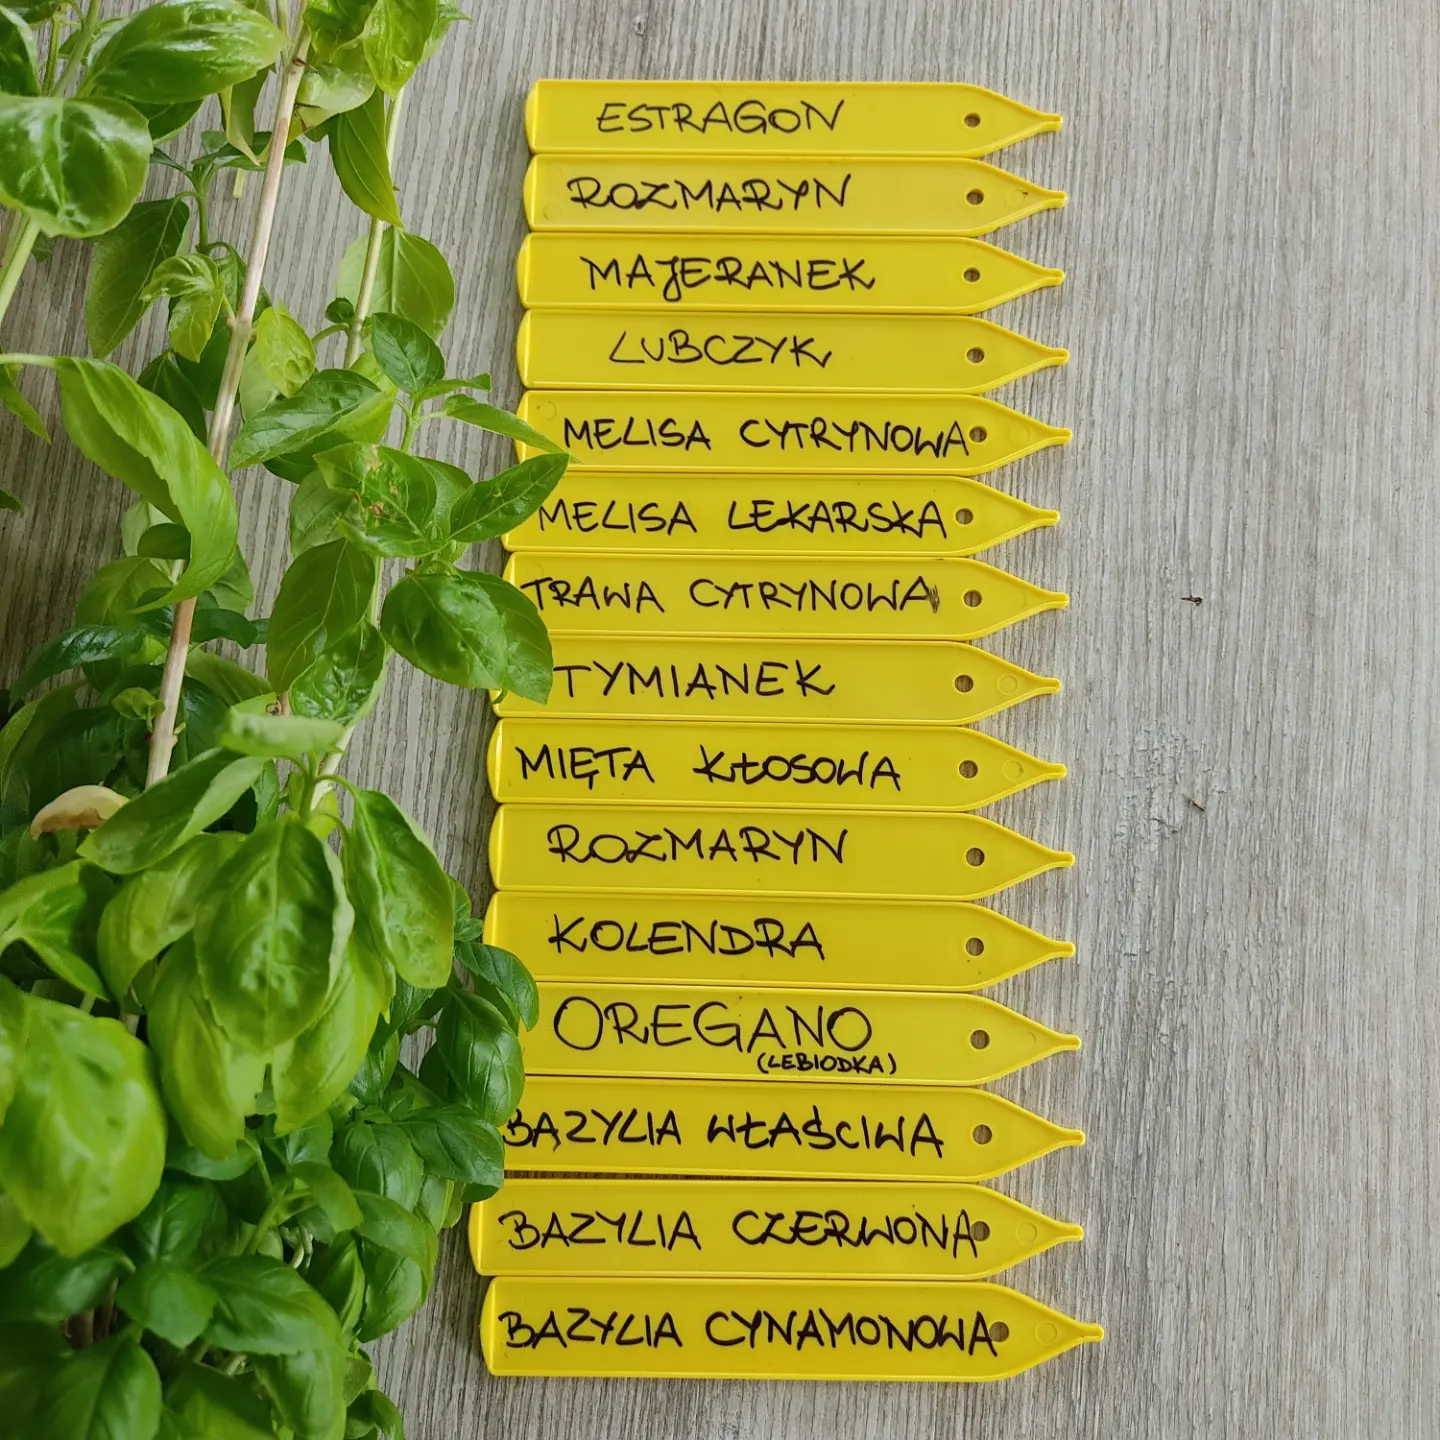 ESTRAGON
ROZMARYN
MAJERANEK
LUBCZYK
MELISA CYTRYNOWA
MELISA LEKARSKA
TRAWA CYTRYNOWA
TYMIANEK
MIĘTA KŁOSOWA
ROZMARYN
KOLENDRA
OREGANO
(LEBIODKA)
BAZYLIA WŁAŚCIWA
BAZYLIA CZERWONA
BAZYLIA CYNAMONOWA